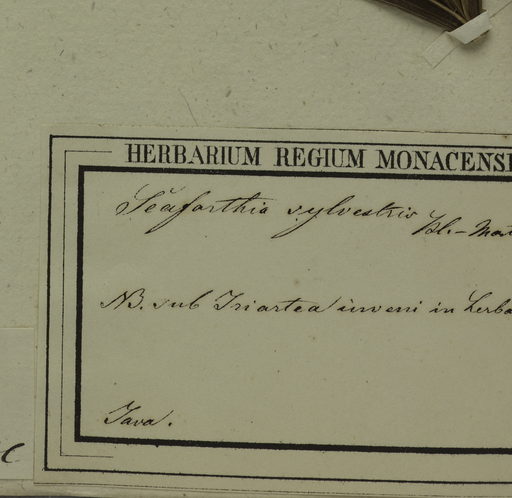 HERBARIUM REGIUM MONACENS
Seaforthia sylvestris Bl. - Mat
NB. sub Iriartea inveni in herba
Java.